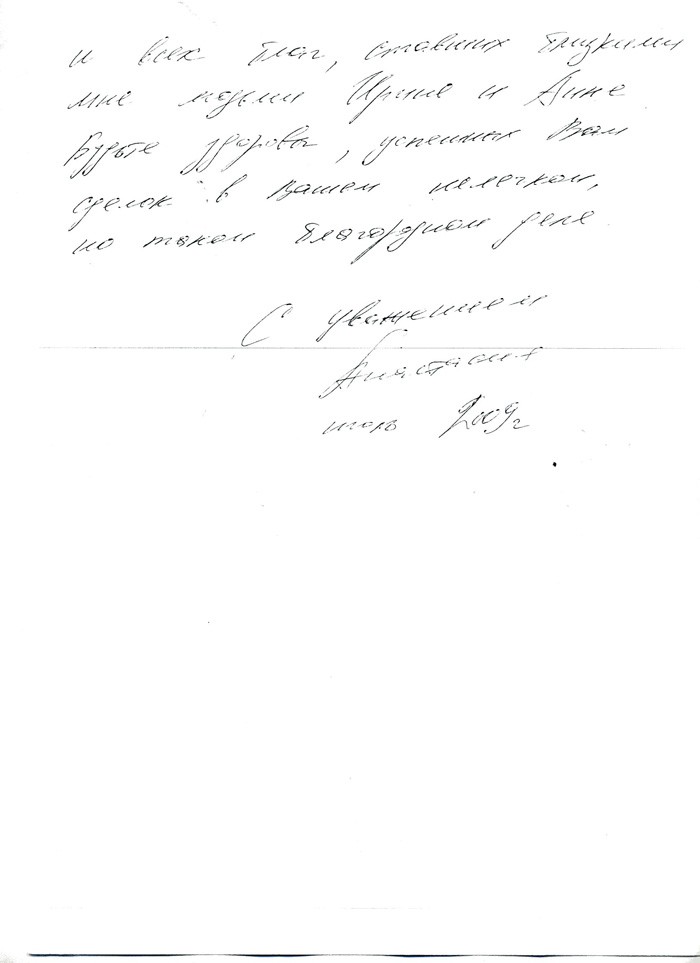 и всех благ, ставших близкими
мне людьми Ирине и Анне
Будьте здоровы, успешных Вам
сделок в Вашем нелегком,
но таком благородном деле.
С уважением
Анастасия
июль 2009г